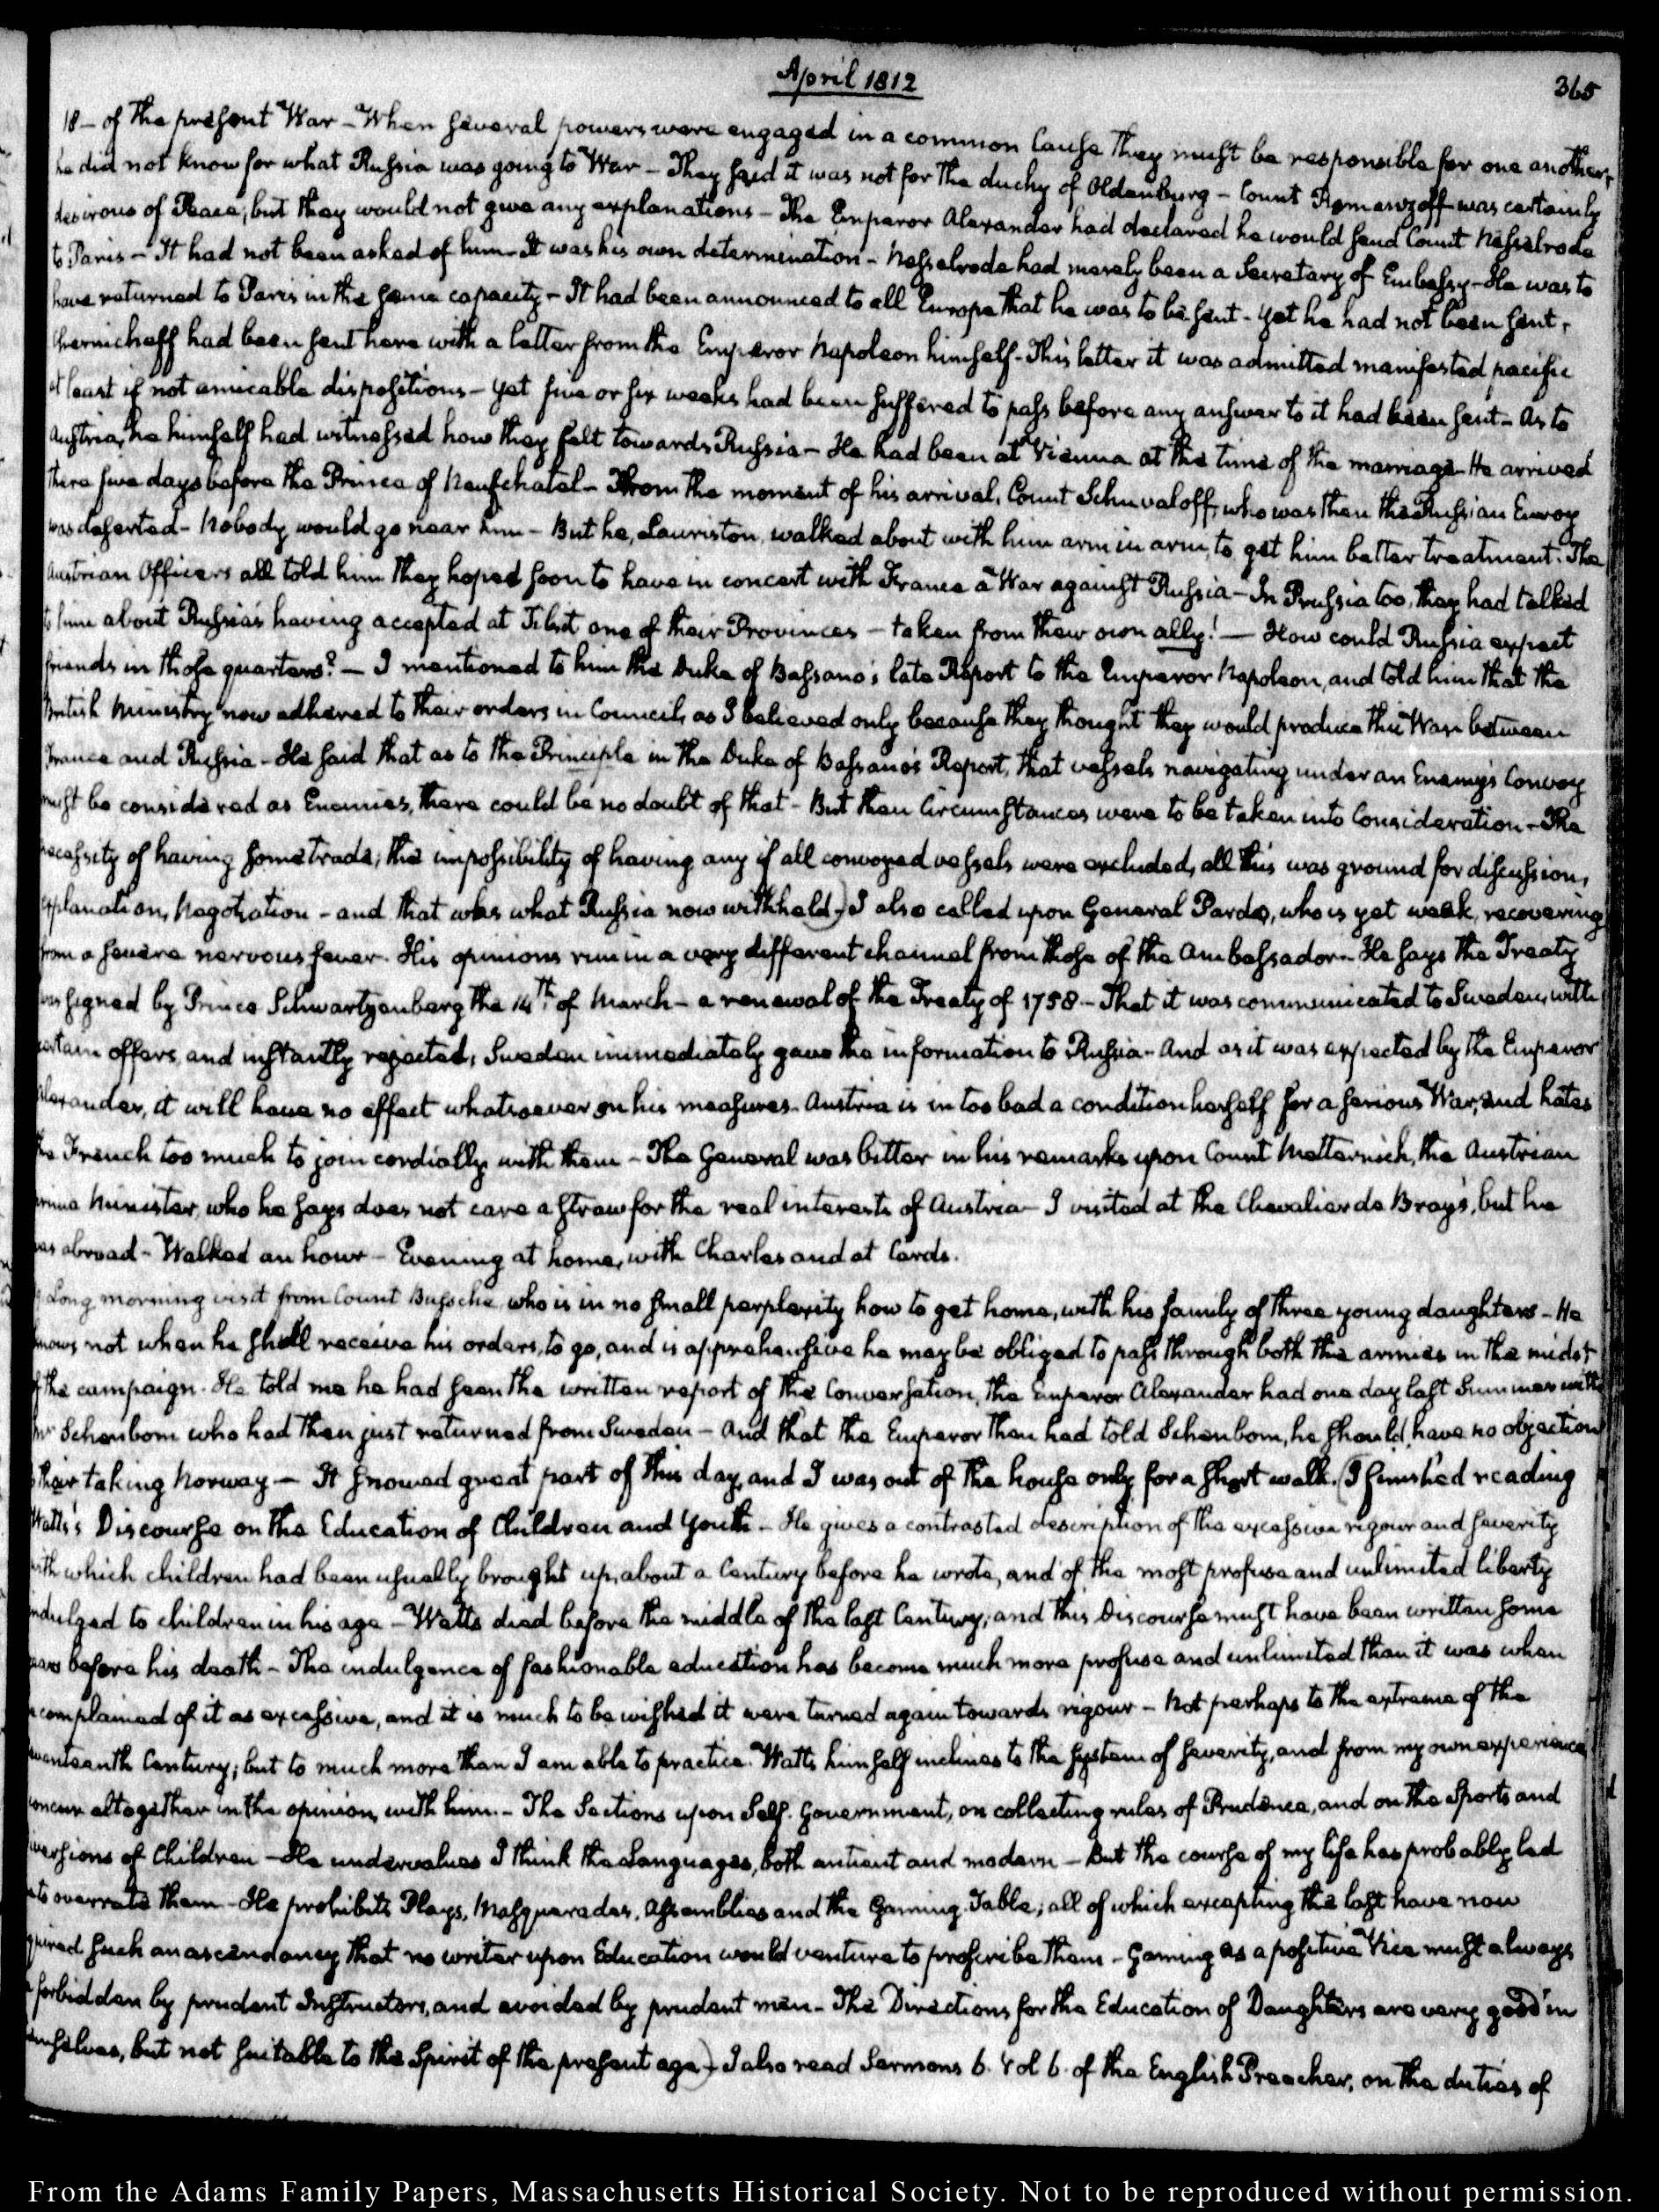 April 1812
365
18 — of the present War — When several powers were engaged in a common Cause they must be responsible for one another,
he did not know for what Russia was going to War — They said it was not for the duchy of Oldenburg — Count Romanzoff was certainly
desirous of Peace; but they would not give any explanations — The Emperor Alexander had declared he would send Count Nesselrode
to Paris — It had not been asked of him — It was his own determination — Nesselrode had merely been a Secretary of Embassy — He was to
have returned to Paris in the same capacity — It had been announced to all Europe that he was to be sent — yet he had not been sent.
Chernicheff had been sent here with a letter from the Emperor Napoleon himself — This letter it was admitted manifested pacific
at least if not amicable dispositions — yet five or six weeks had been suffered to pass before any answer to it had been sent — As to
Austria, he himself had witnessed how they felt towards Russia — He had been at Vienna at the time of the marriage — He arrived
there five days before the Prince of Neufchatel — From the moment of his arrival, Count Schuvaloff, who was then the Russian Envoy
was deserted — Nobody would go near him — But he, Lauriston, walked about with him arm in arm, to get him better treatment. The
Austrian Officers all told him they hoped soon to have in concert with France a War against Russia — In Prussia too, they had talked
to him about Russia's having accepted at Tilsit one of their Provinces — taken from their own ally! — How could Russia expect
friends in those quarters? — I mentioned to him the Duke of Bassano's late Report to the Emperor Napoleon, and told him that the
British Ministry now adhered to their orders in Council, as I believed only because they thought they would produce this War between
France and Russia — He said that as to the Principle in the Duke of Bassano's Report, that vessels navigating under an Enemy's Convoy
must be considered as Enemies, there could be no doubt of that — But then Circumstances were to be taken into Consideration — The
necessity of having some trade; the impossibility of having any if all convoyed vessels were excluded, all this was ground for discussion,
explanation, Negotiation — and that was what Russia now withheld) I also called upon General Pardo, who is yet weak, recovering
from a severe nervous fever. His opinions run in a very different channel from those of the Ambassador — He says the Treaty
was signed by Prince Schwartzenberg the 14th of March — a renewal of the Treaty of 1758 — That it was communicated to Sweden, with
certain offers, and instantly rejected, Sweden immediately gave the information to Russia — And as it was expected by the Emperor
Alexander, it will have no effect whatsoever on his measures. Austria is in too bad a condition herself for a serious War, and hates
the French too much to join cordially with them — The General was bitter in his remarks upon Count Metternich, the Austrian
prime Minister, who he says does not care a straw for the real interests of Austria — I visited at the Chevalier de Bray's, but he
was abroad — Walked an hour — Evening at home, with Charles and at Cards.
Long morning visit from Count Bussche, who is in no small perplexity how to get home, with his family of three young daughters — He
knows not when he shall receive his orders, to go, and is apprehensive he may be obliged to pass through both the armies in the midst
of the campaign. He told me he had seen the written report of the Conversation, the Emperor Alexander had one day last Summer with
Mr Schenbom who had then just returned from Sweden — And that the Emperor then had told Schenbom, he should have no objection
to their taking Norway — It snowed great part of this day, and I was out of the house only for a short walk. (I finished reading
Watts's Discourse on the Education of Children and Youth — He gives a contrasted description of the excessive rigour and severity
with which children had been usually brought up, about a Century before he wrote, and of the most profuse and unlimited liberty
indulged to children in his age — Watts died before the middle of the last Century, and this Discourse must have been written some
years before his death — The indulgence of fashionable education has become much more profuse and unlimited than it was when
he complained of it as excessive, and it is much to be wished it were turned again towards rigour — Not perhaps to the extreme of the
seventeenth Century; but to much more than I am able to practice. Watts himself inclines to the system of severity, and from my own experience
concur altogether in the opinion, with him. — The Sections upon Self-Government, on collecting rules of Prudence, and on the Sports and
diversions of Children — He undervalues I think the Languages, both antient and modern — But the course of my life has probably led
me to overrate them — He prohibits Plays, Masquerades, Assemblies and the Gaming-Table; all of which excepting the last have now
acquired such an ascendancy that no writer upon Education would venture to proscribe them — Gaming as a positive Vice must always
be forbidden by prudent Instructors, and avoided by prudent men — The Directions for the Education of Daughters are very good in
themselves, but not suitable to the Spirit of the present age) I also read Sermons 6. Vol 6. of the English Preacher, on the duties of
From the Adams Family Papers, Massachusetts Historical Society. Not to be reproduced without permission.